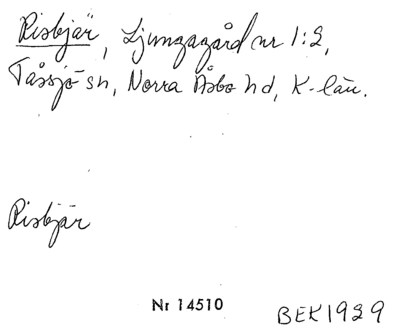 Risbjär, Ljungagård nr 1:2,
Tåssjö sn, Norra Åsbo hd, K-län.
Risbjär
Nr 14510
BEK1929